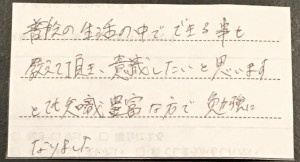 普段の生活の中でできる事も
教えて頂き、意識したいと思います
とても知識豊富な方で 勉強に
なりました